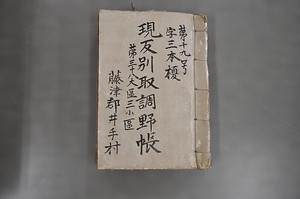 第十九号
字三本榎
現反別取調野帳
第三十八大区三小区
藤津郡井手村